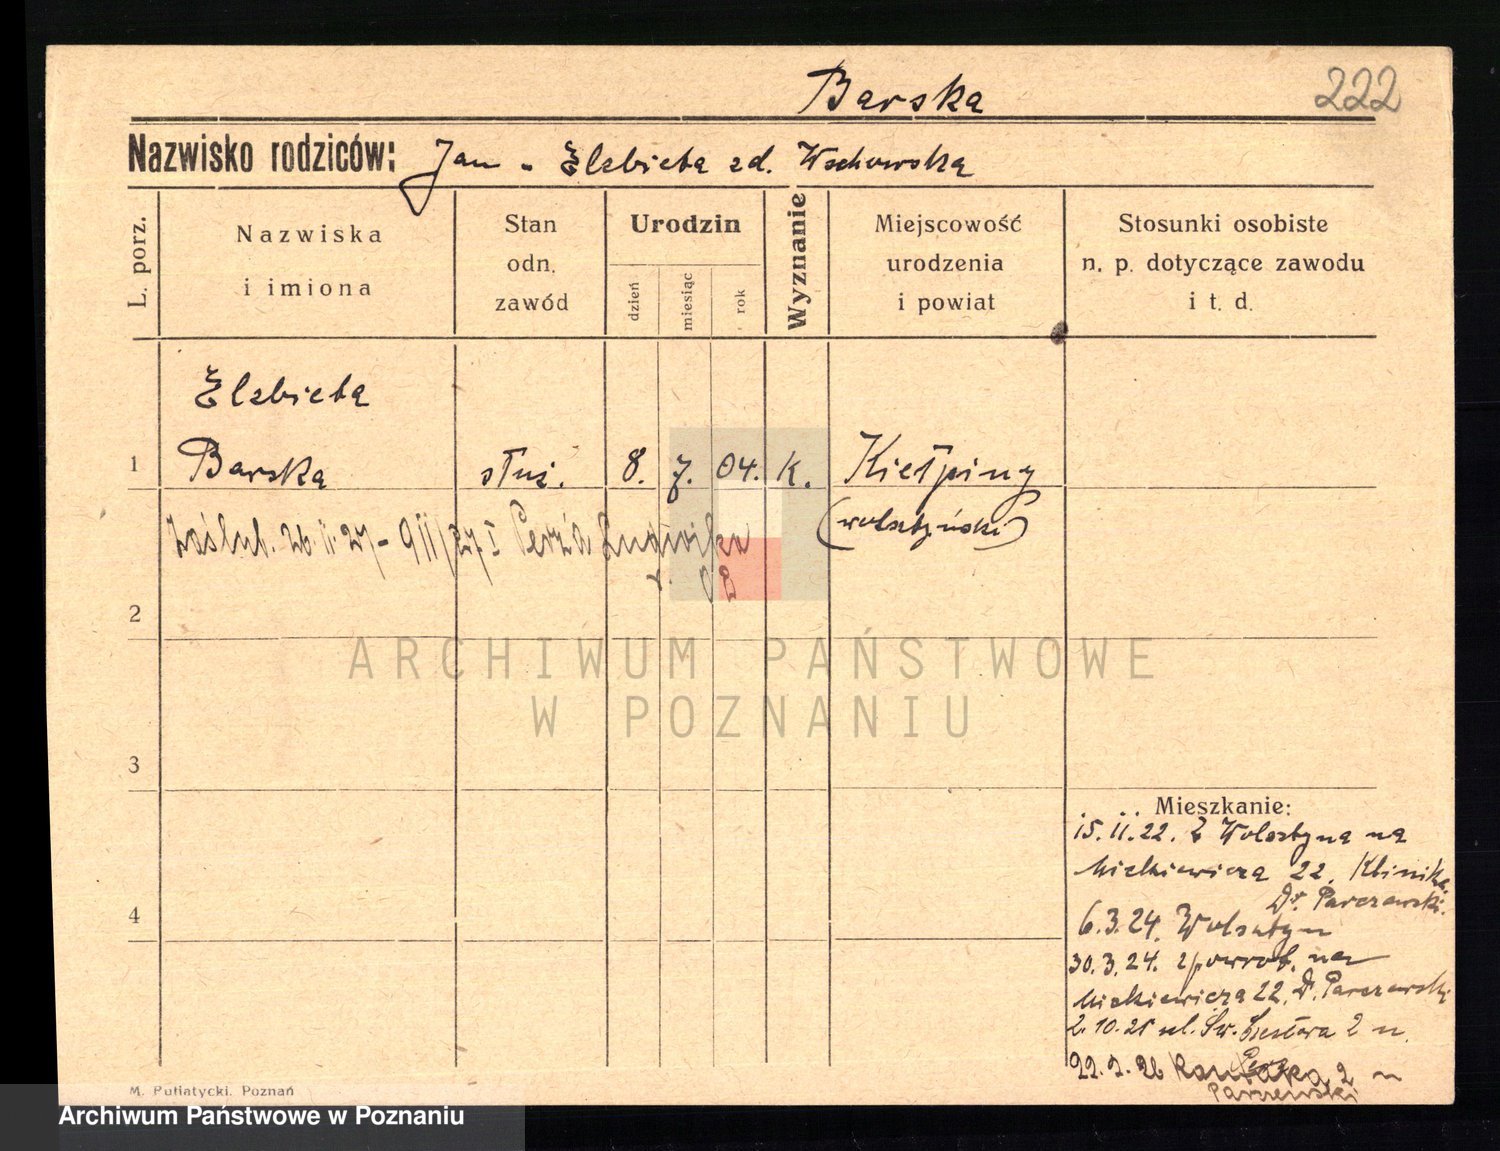 Barska 222
Nazwisko rodziców: Jan - Elzbieta zd. Wschowska
L. porz.
Nazwiska
i imiona
Stan
odn.
zawód
Urodzin
dzień
miesiąc
rok
Wyznanie
Miejscowość
urodzenia
i powiat
Stosunki osobiste
n. p. dotyczące zawodu
i t. d.
Elzbieta
1 Barska służ. 8. 7. 04. K. Kiełpiny
(wolsztyński)
Zaślub. 26.II.27 - 911/27 I Ludwika
r. 08
2
3
4
ARCHIWUM PAŃSTWOWE
W POZNANIU
Mieszkanie:
15.II.22. Z Wolsztyna na
Mickiewicza 22. Klinika
Dr. Parczewski.
6.3.24. Wolsztyn
30.3.24. zpowrot. na
Mickiewicza 22. D. Parczewski
2.10.25 ul. Św. 2 n.
22.2.26 2
Parczewski
M. Putiatycki. Poznań
Archiwum Państwowe w Poznaniu